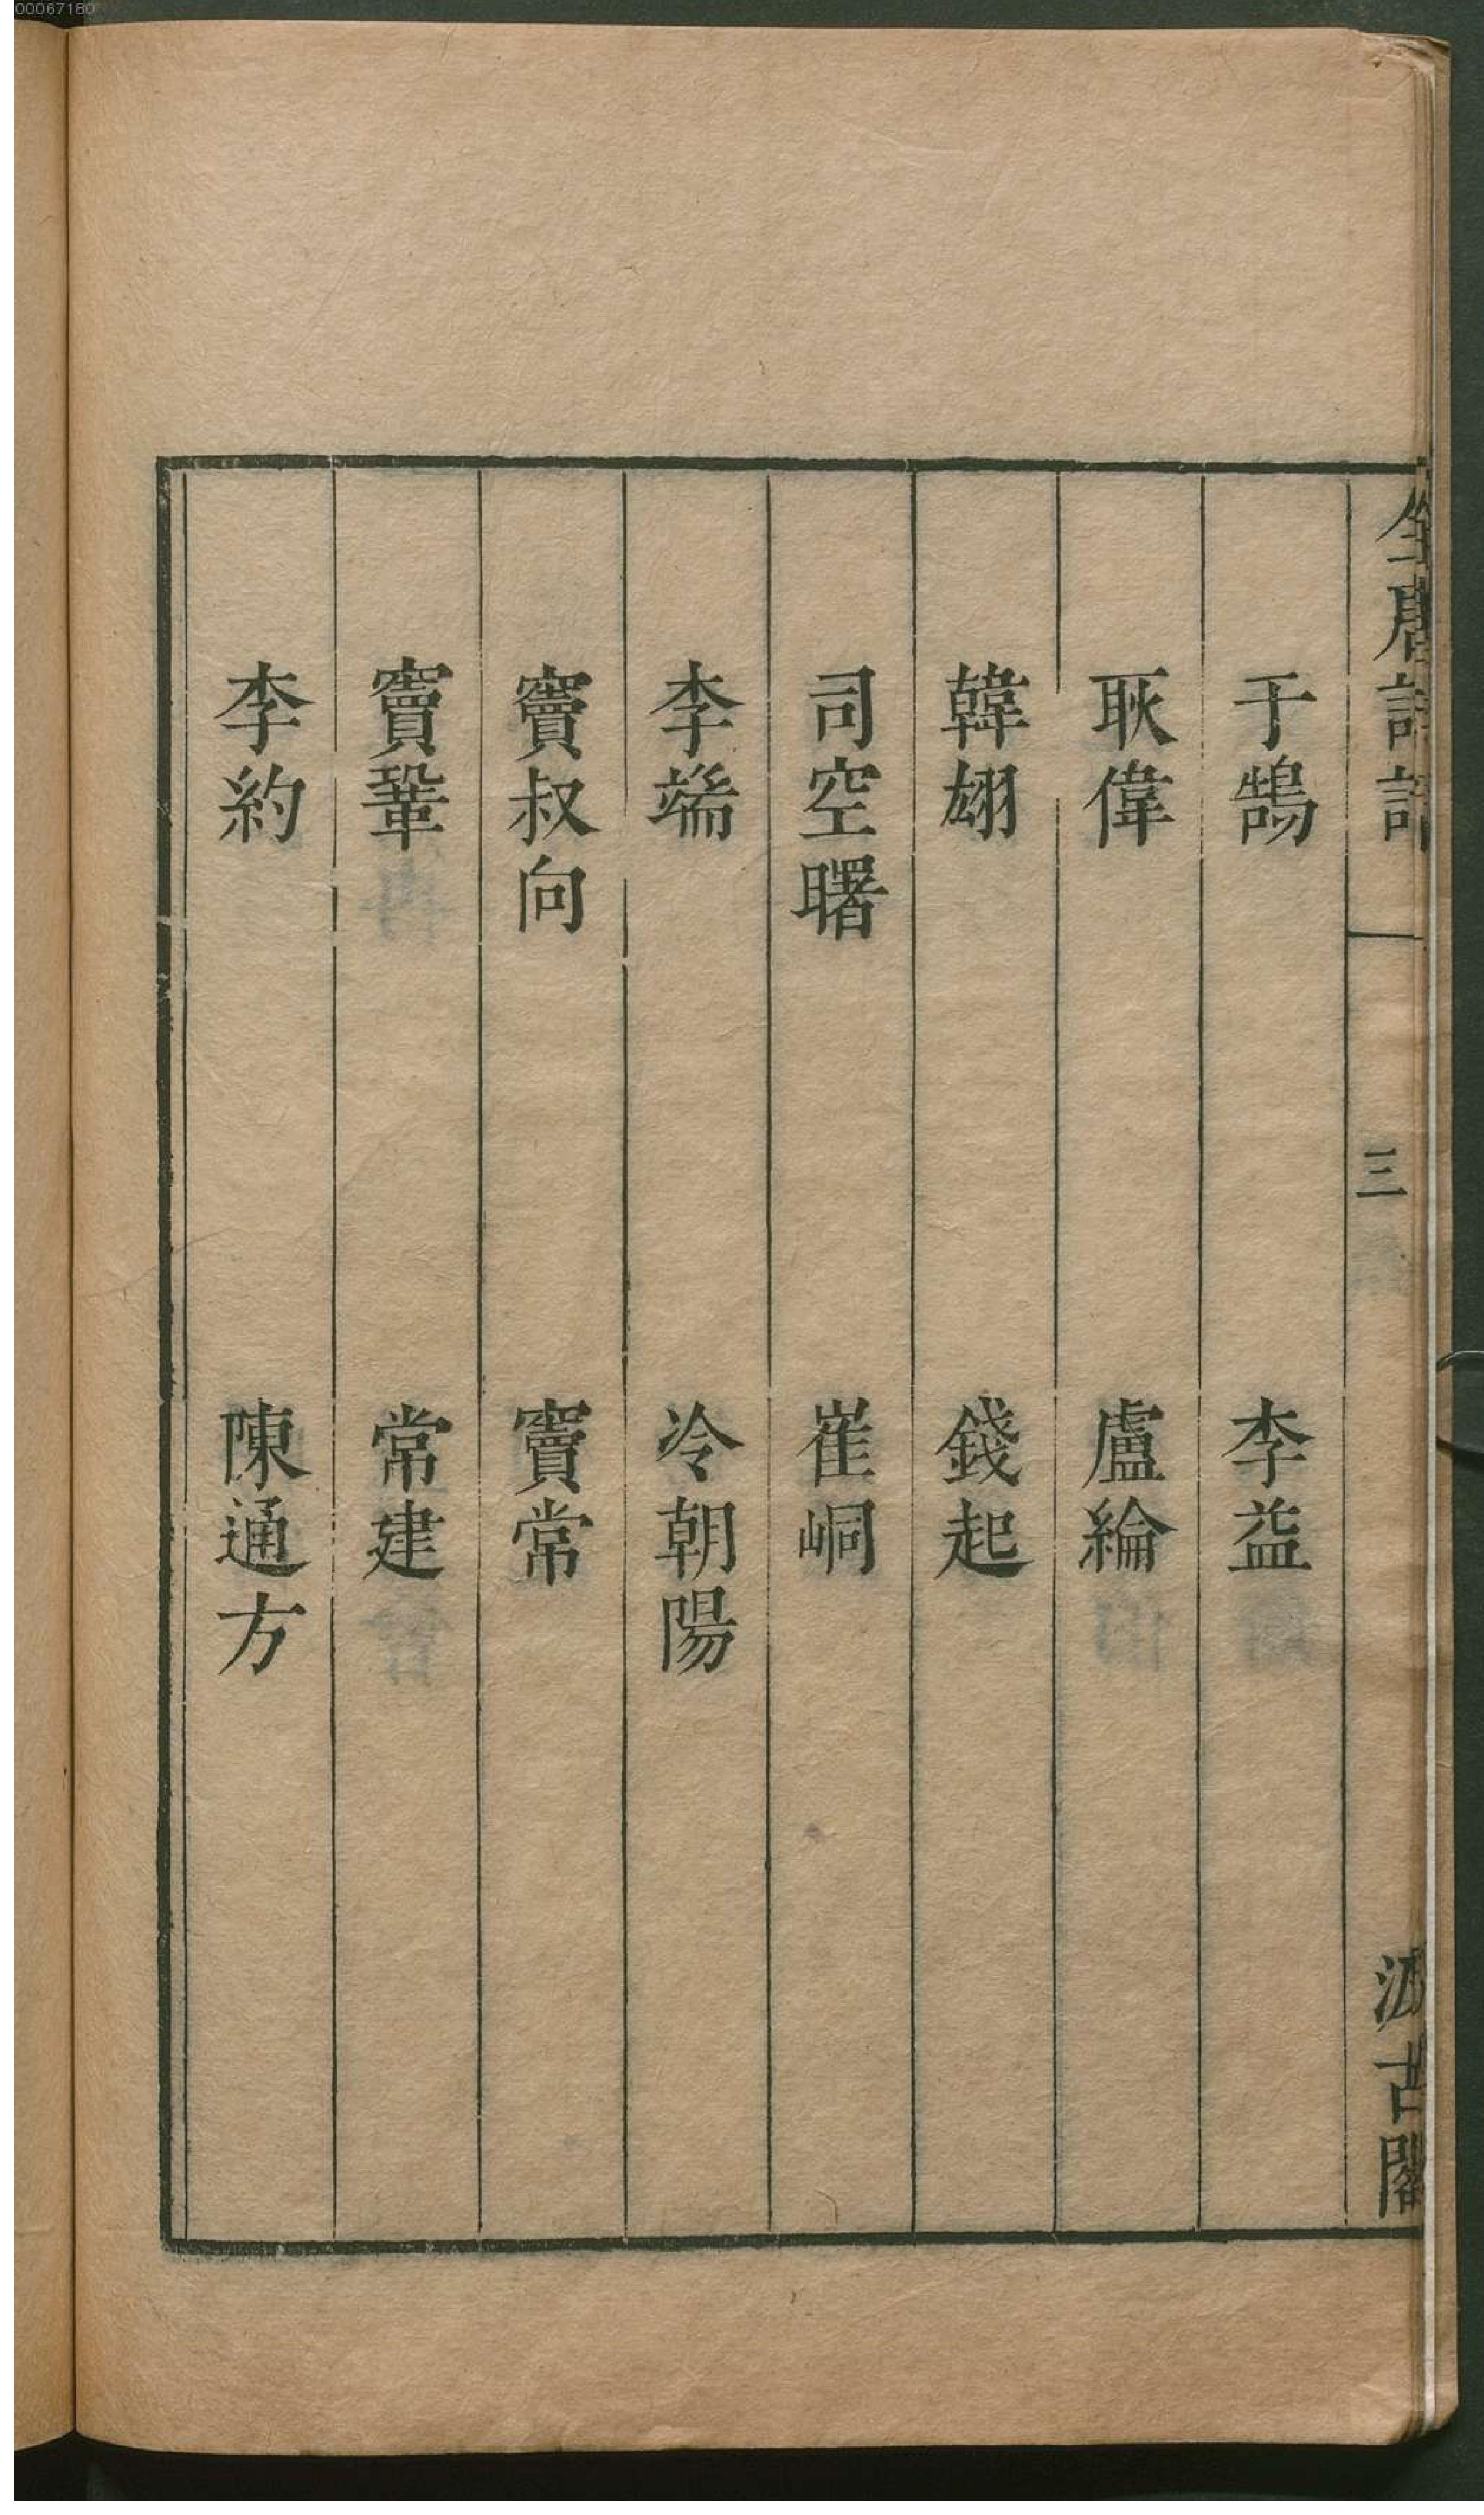 00067180
全唐詩話 三 汲古閣
于鵠 李益
耿偉 盧綸
韓翃 錢起
司空曙 崔峒
李端 冷朝陽
竇叔向 竇常
竇鞏 常建
李約 陳通方